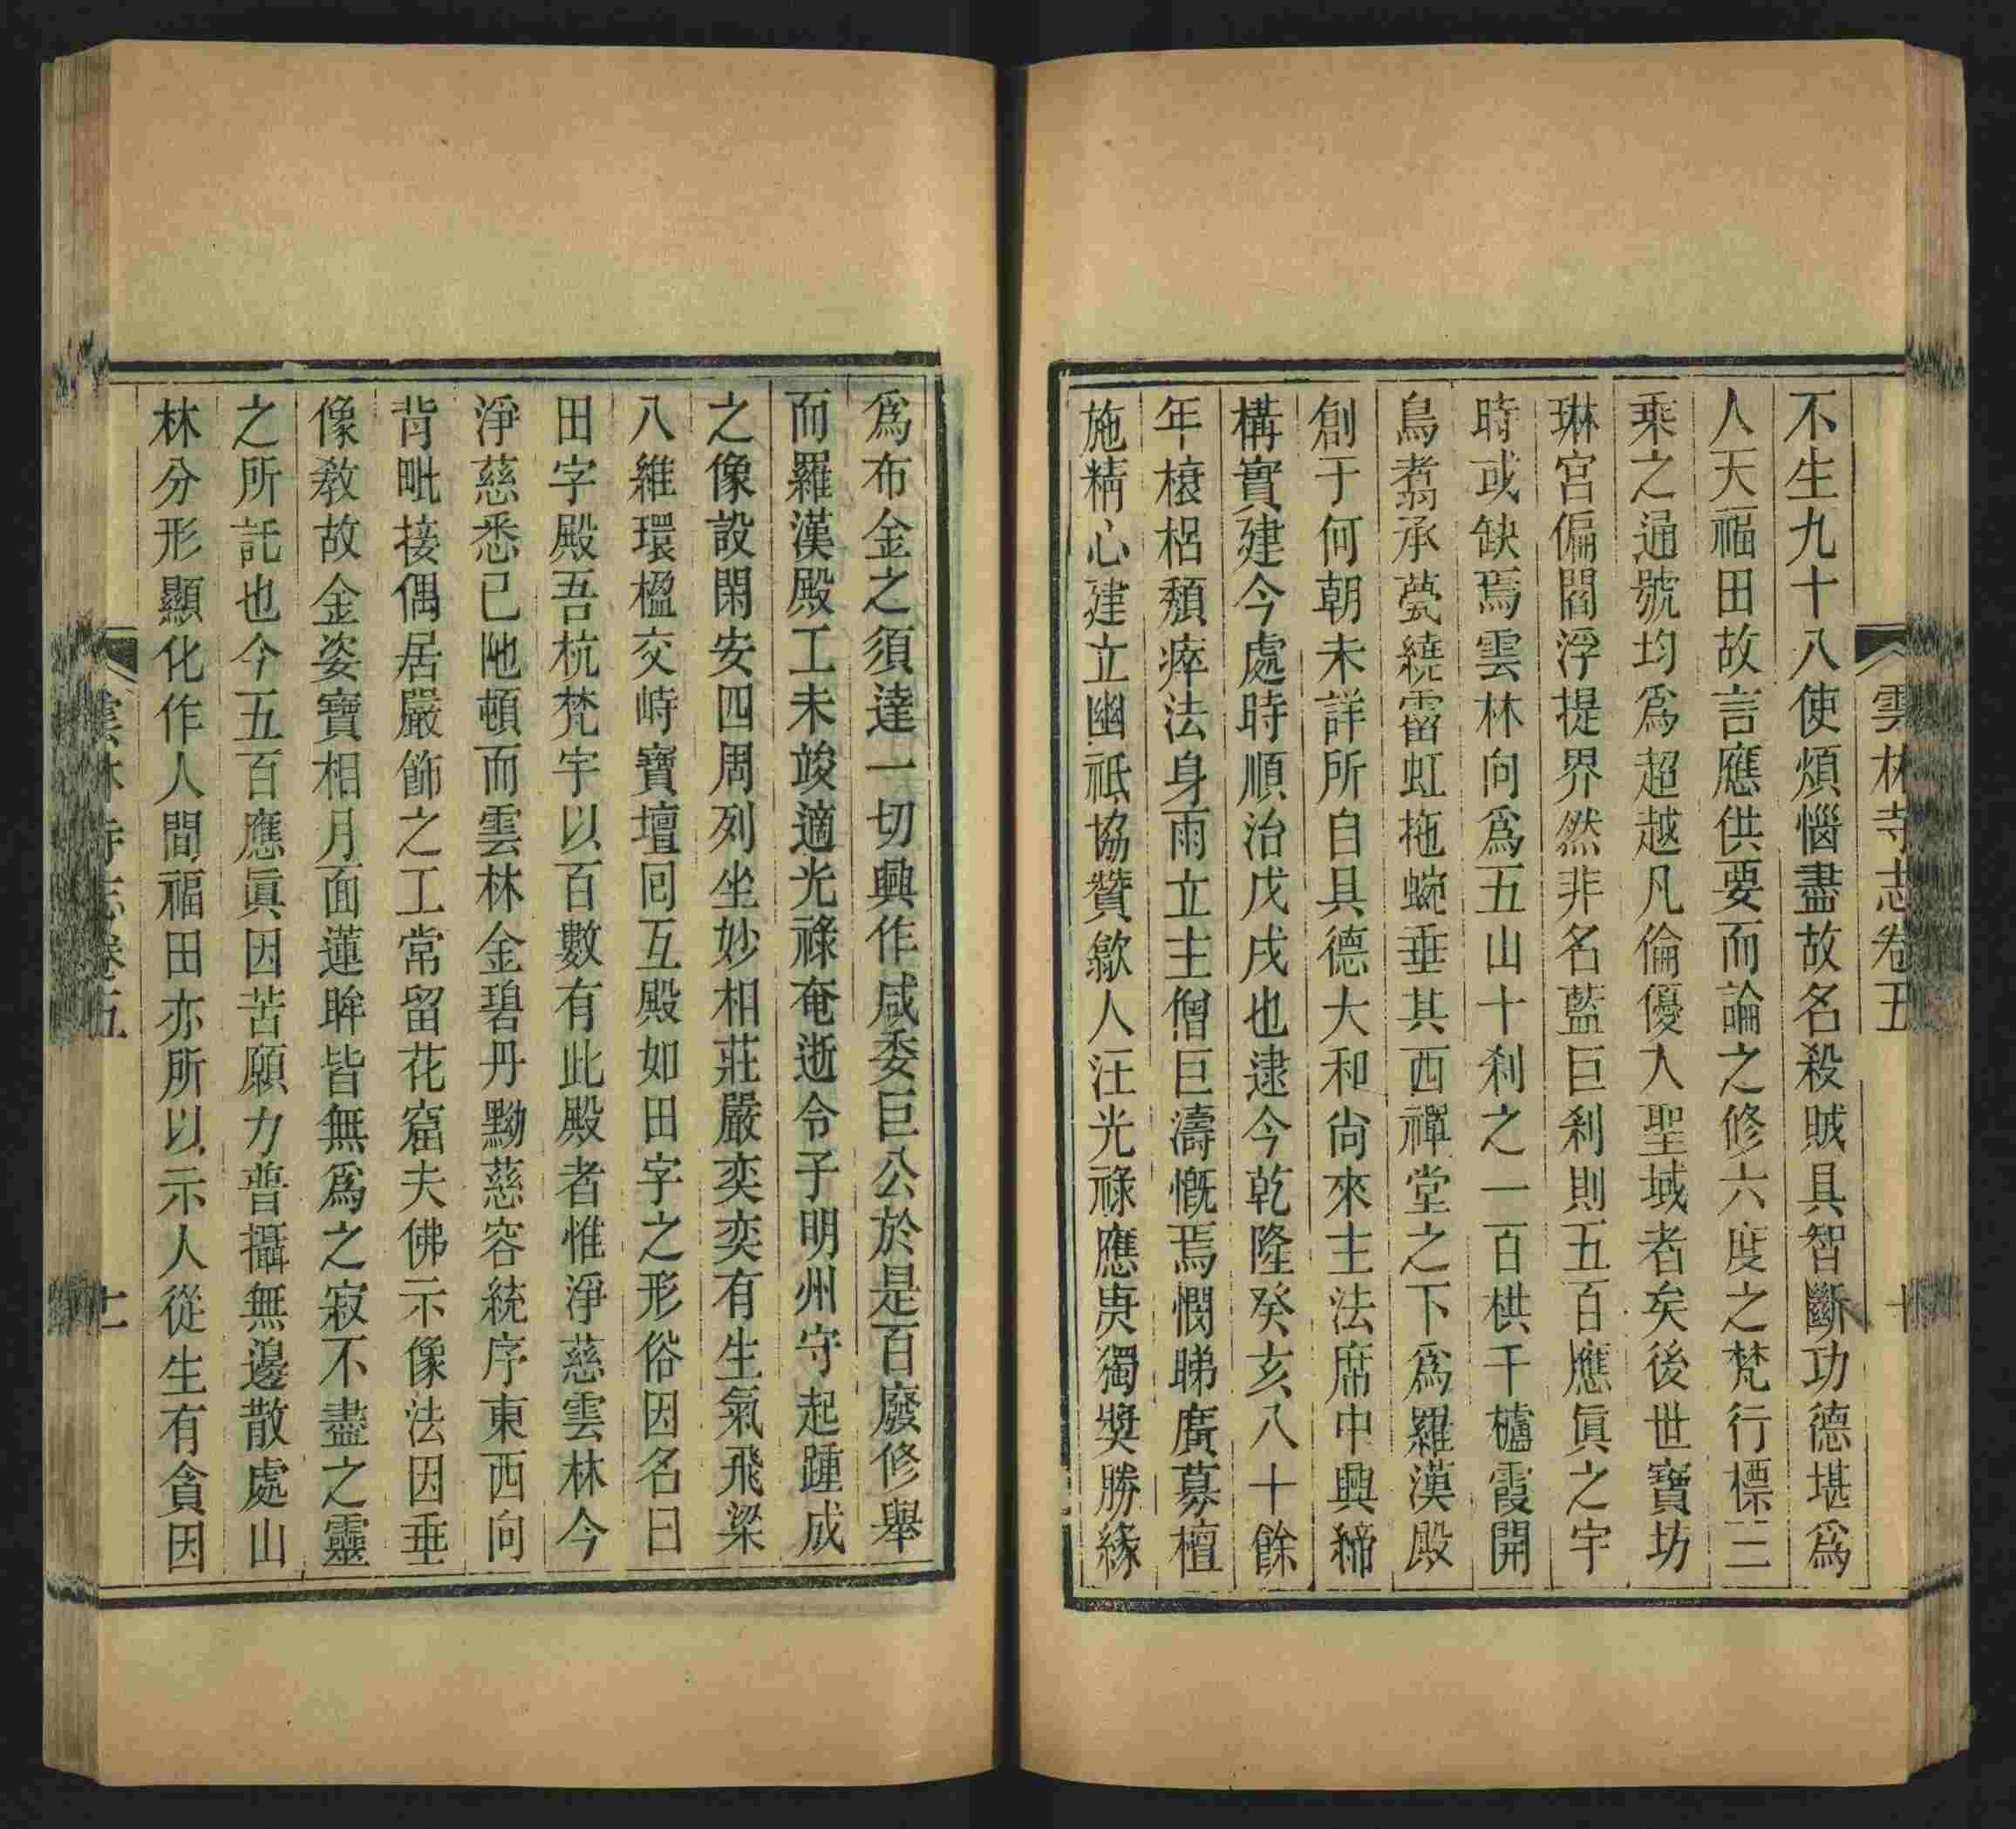 雲林寺志卷五
十
不生九十八使煩惱盡故名殺賊具智斷功德堪爲
人天福田故言應供要而論之修六度之梵行標三
乘之通號均爲超越凡倫優入聖域者矣後世寶坊
琳宮徧閻浮提界然非名藍巨刹則五百應眞之宇
時或缺焉雲林向爲五山十刹之一百栱千櫨霞開
鳥翥承甍繞霤虹拖蜿垂其西禪堂之下爲羅漢殿
創于何朝未詳所自具德大和尙來主法席中興締
構實建今處時順治戊戌也逮今乾隆癸亥八十餘
年榱梠頽瘁法身雨立主僧巨濤慨焉憫睇廣募檀
施精心建立幽祇協贊歙人汪光祿應庚獨獎勝緣
爲布金之須達一切興作咸委巨公於是百廢修舉
而羅漢殿工未竣適光祿奄逝令子明州守起踵成
之像設閑安四周列坐妙相莊嚴奕奕有生氣飛梁
八維環楹交峙寶壇囘互殿如田字之形俗因名曰
田字殿吾杭梵宇以百數有此殿者惟淨慈雲林今
淨慈悉已阤頓而雲林金碧丹黝慈容統序東西向
背毗接偶居嚴飾之工常留花窟夫佛示像法因垂
像教故金姿寶相月面蓮眸皆無爲之寂不盡之靈
之所託也今五百應眞因苦願力普攝無邊散處山
林分形顯化作人間福田亦所以示人從生有貪因
雲林寺志卷五
十一